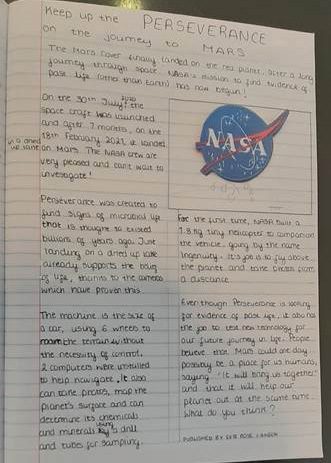 Keep up the PERSEVERANCE
on the journey to MARS
The Mars rover finally landed on the red planet, after a long
journey through space. NASA's mission to find evidence of
past life (other than Earth) has now begun!
On the 30th July 2020 the
space craft was launched
and after 7 months, on the
18th February 2021, it landed
in a dried
up lake
on Mars. The NASA crew are
very pleased and can't wait to
investigate!
NASA
Perseverance was created to
find signs of microbial life
that is thought to existed
billions of years ago. Just
landing on a dried up lake
already supports the
of life, thanks to the camera
which have proven this.
For the first time, NASA built a
1.8kg tiny helicopter to companion
the vehicle, going by the name
Ingenuity. It's job is to fly above
the planet and take photos from
a distance
The machine is the size of
a car, using 6 wheels to
roam the terrain without
the necessity of control.
2 computers were installed
to help navigate. It also
can take photos, map the
planet's surface and can
determine its chemicals
and minerals using a drill
and tubes for sampling.
Even though Perseverance is looking
for evidence of past life, it also has
the job to test new technology for
our future journey in life. People
believe that Mars could one day
possibly be a place for us humans,
saying "It will bring us together"
and that it will help our
planet out at the same time.
What do you think?
PUBLISHED BY